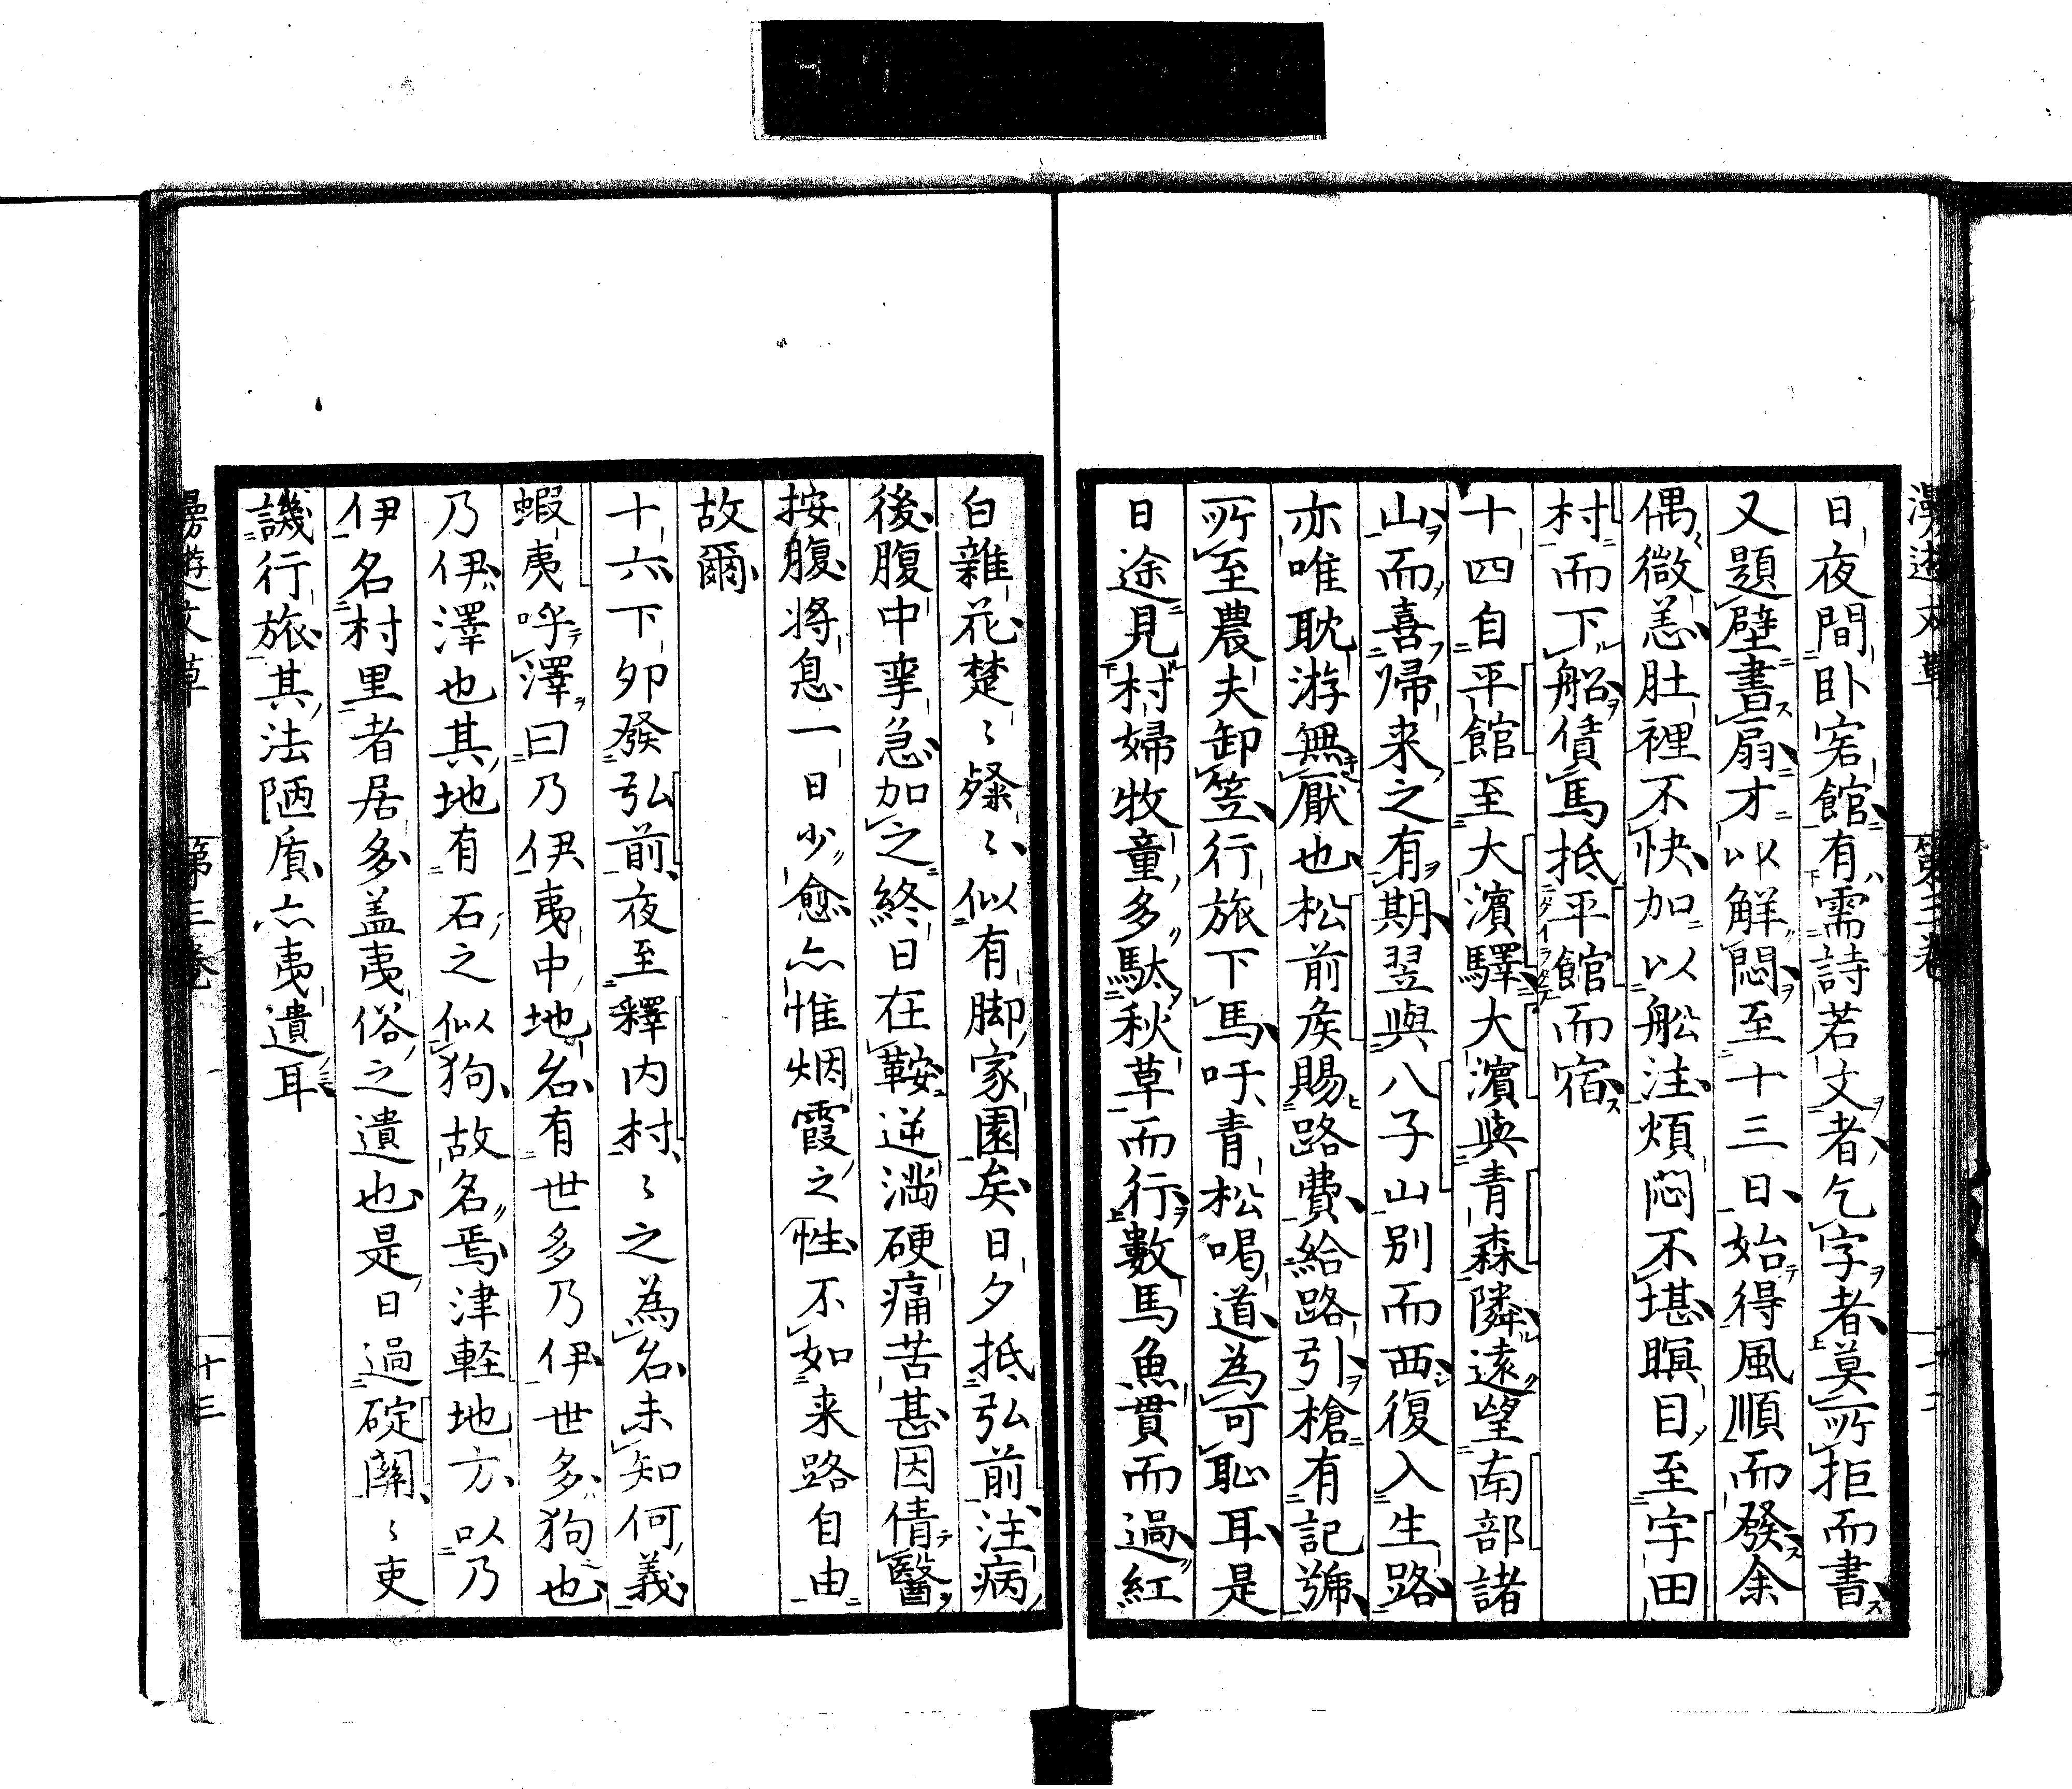 日夜間臥窓館有需詩若文者乞字者莫所拒而書
又題壁書扇才以解悶至十三日始得風順而發余
偶微恙肚裡不快加以船注煩悶不堪瞑目至宇田
村而下船債馬抵平館而宿
十四自平館至大濱驛大濱與青森隣遠望南部諸
山而喜帰来之有期翌與八子山別而西復入生路
亦唯耽游無厭也松前矦賜路費給路引槍有記號
所至農夫卸笠行旅下馬吁青松喝道為可恥耳是
日途見村婦牧童多駄秋草而行數馬魚貫而過紅
白雜花楚〻粲〻似有脚家園矣日夕抵弘前注病
後腹中挛急加之終日在鞍逆滿硬痛苦甚因倩醫
按腹将息一日少愈亦惟烟霞之性不如来路自由
故爾
十六下夘發弘前夜至釋内村〻之為名未知何義
蝦夷呼澤曰乃伊夷中地名有世多乃伊世多狗也
乃伊澤也其地有石之似狗故名焉津軽地方以乃
伊名村里者居多盖夷俗之遺也是日過碇關〻吏
譏行旅其法陋頂亦夷遺耳
漫遊文草
第三卷
十三